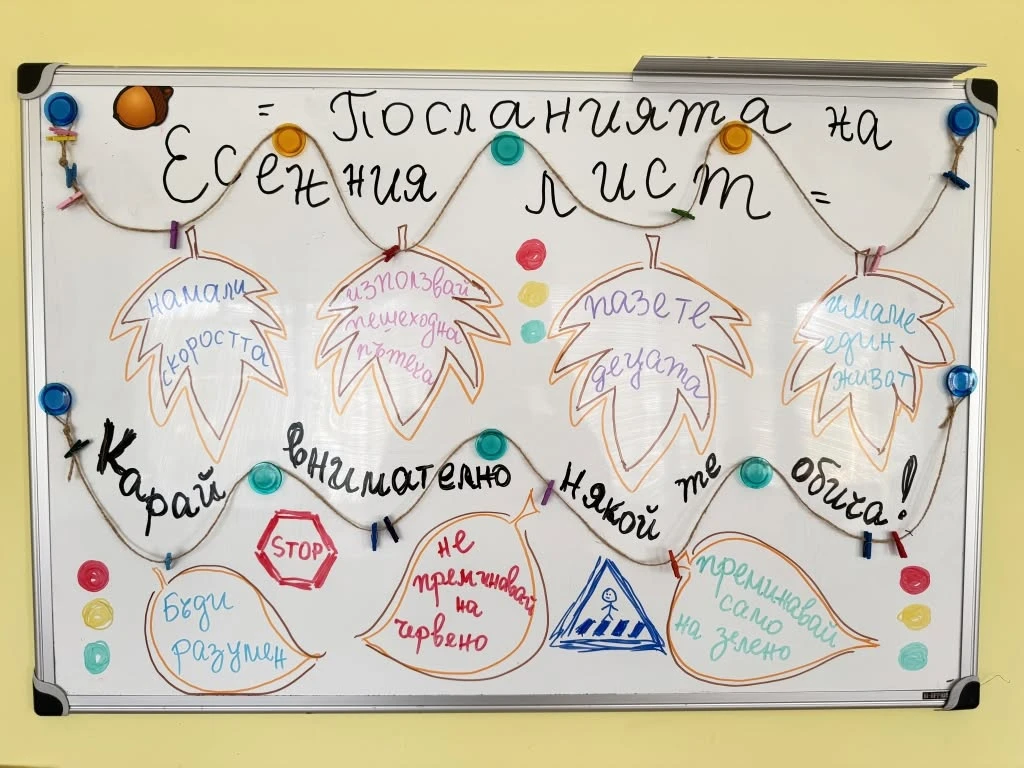 = Посланията на
Есенния лист =
намали
скоростта
използвай
пешеходна
пътека
пазете
децата
имаме
един
живот
Карай внимателно някой те обича!
STOP
Бъди
разумен
не
преминавай
на
червено
преминавай
само
на зелено